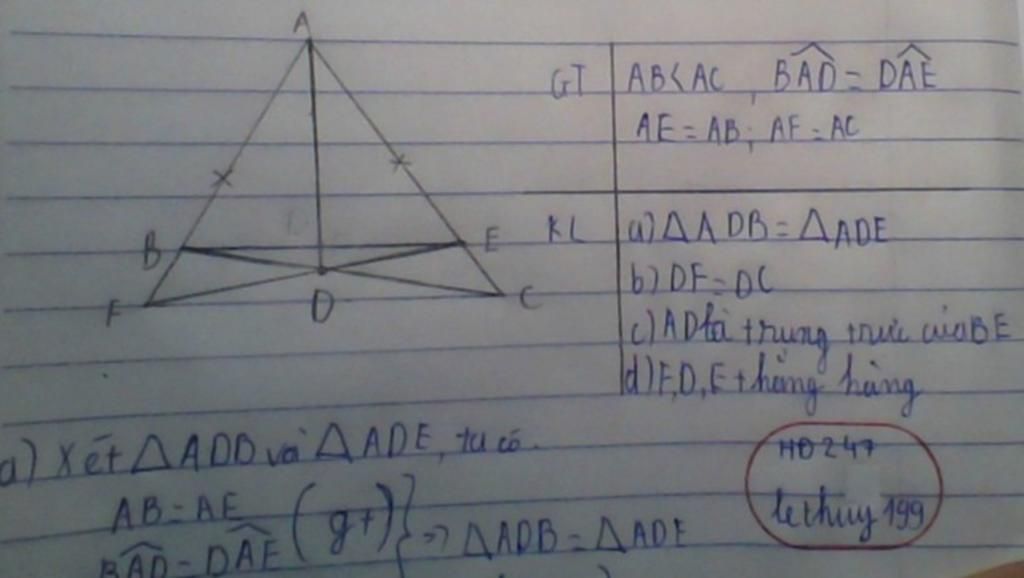 A
GT AB<AC, BAD̂ = DAÊ
AE = AB; AF = AC
B E
F D C
KL a) △ADB = △ADE
b) DF = DC
c) AD là trung trực của BE
d) F, D, E thẳng hàng
a) Xét △ADB và △ADE, ta có.
AB = AE
BAD̂ = DAÊ (gt) } => △ADB = △ADE
HD247
lethuy199